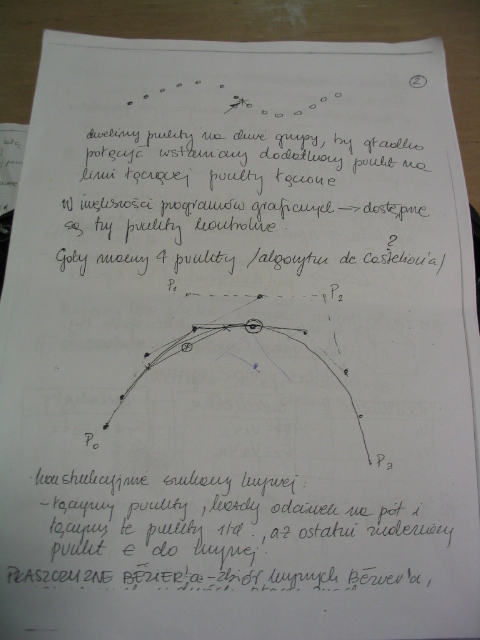 2
dzielimy punkty na dwie grupy, by gładko
połączyć wstawiamy dodatkowy punkt na
linii łączącej punkty łączone
W większości programów graficznych → dostępne
są try punkty kontrolne.
?
Gdy mamy 4 punkty /algorytm de Casteliau'a/
P1
P2
P0
P3
konstrukcyjnie szukamy krzywej:
- łączymy punkty, każdy odcinek na pół i
łączymy te punkty itd., aż ostatni znaleziony
punkt ∈ do krzywej.
PŁASZCZYZNE BÉZIER'a - zbiór krzywych Bézier'a,